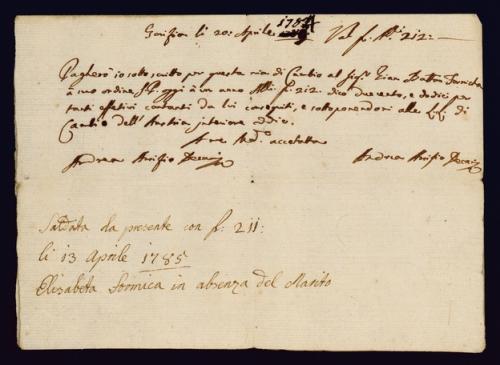 li 20. Aprile 1784 Val f. 212:
Pagherò io sotto scritto per questa mia di Cambio al Sigr. Gian Batta Formica
à suo ordine oggi à un anno f. 212. dico duecento, e dodici per
tanti effetivi contanti da lui conseguiti, e sottoponendomi alle LL di
Cambio dell'Austria interiore addio.
accettata
Andrea Andrea
Saldata la presente con f: 211:
li 13 Aprile 1785
Elisabeta Formica in absenza del Marito